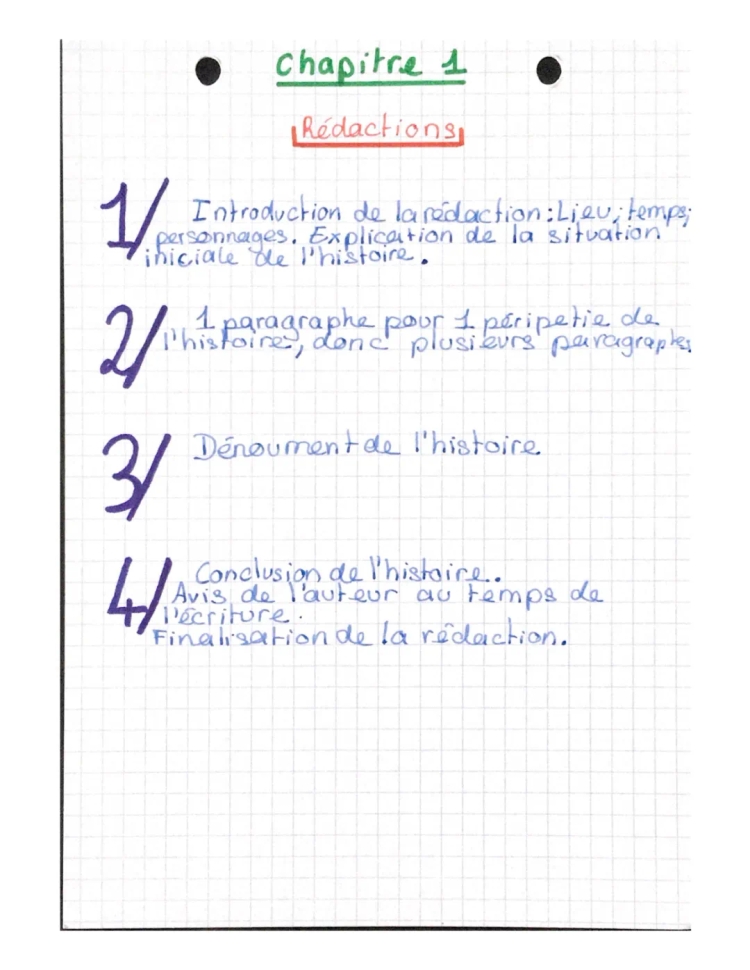 Chapitre 1
Rédactions
1/ Introduction de la rédaction : Lieu ; temps ;
personnages. Explication de la situation
iniciale de l'histoire.
2/ 1 paragraphe pour 1 péripetie de
l'histoire, donc plusieurs paragraphes
3/ Dénoument de l'histoire.
4/ Conclusion de l'histoire..
Avis de l'auteur au temps de
l'écriture.
Finalisation de la rédaction.